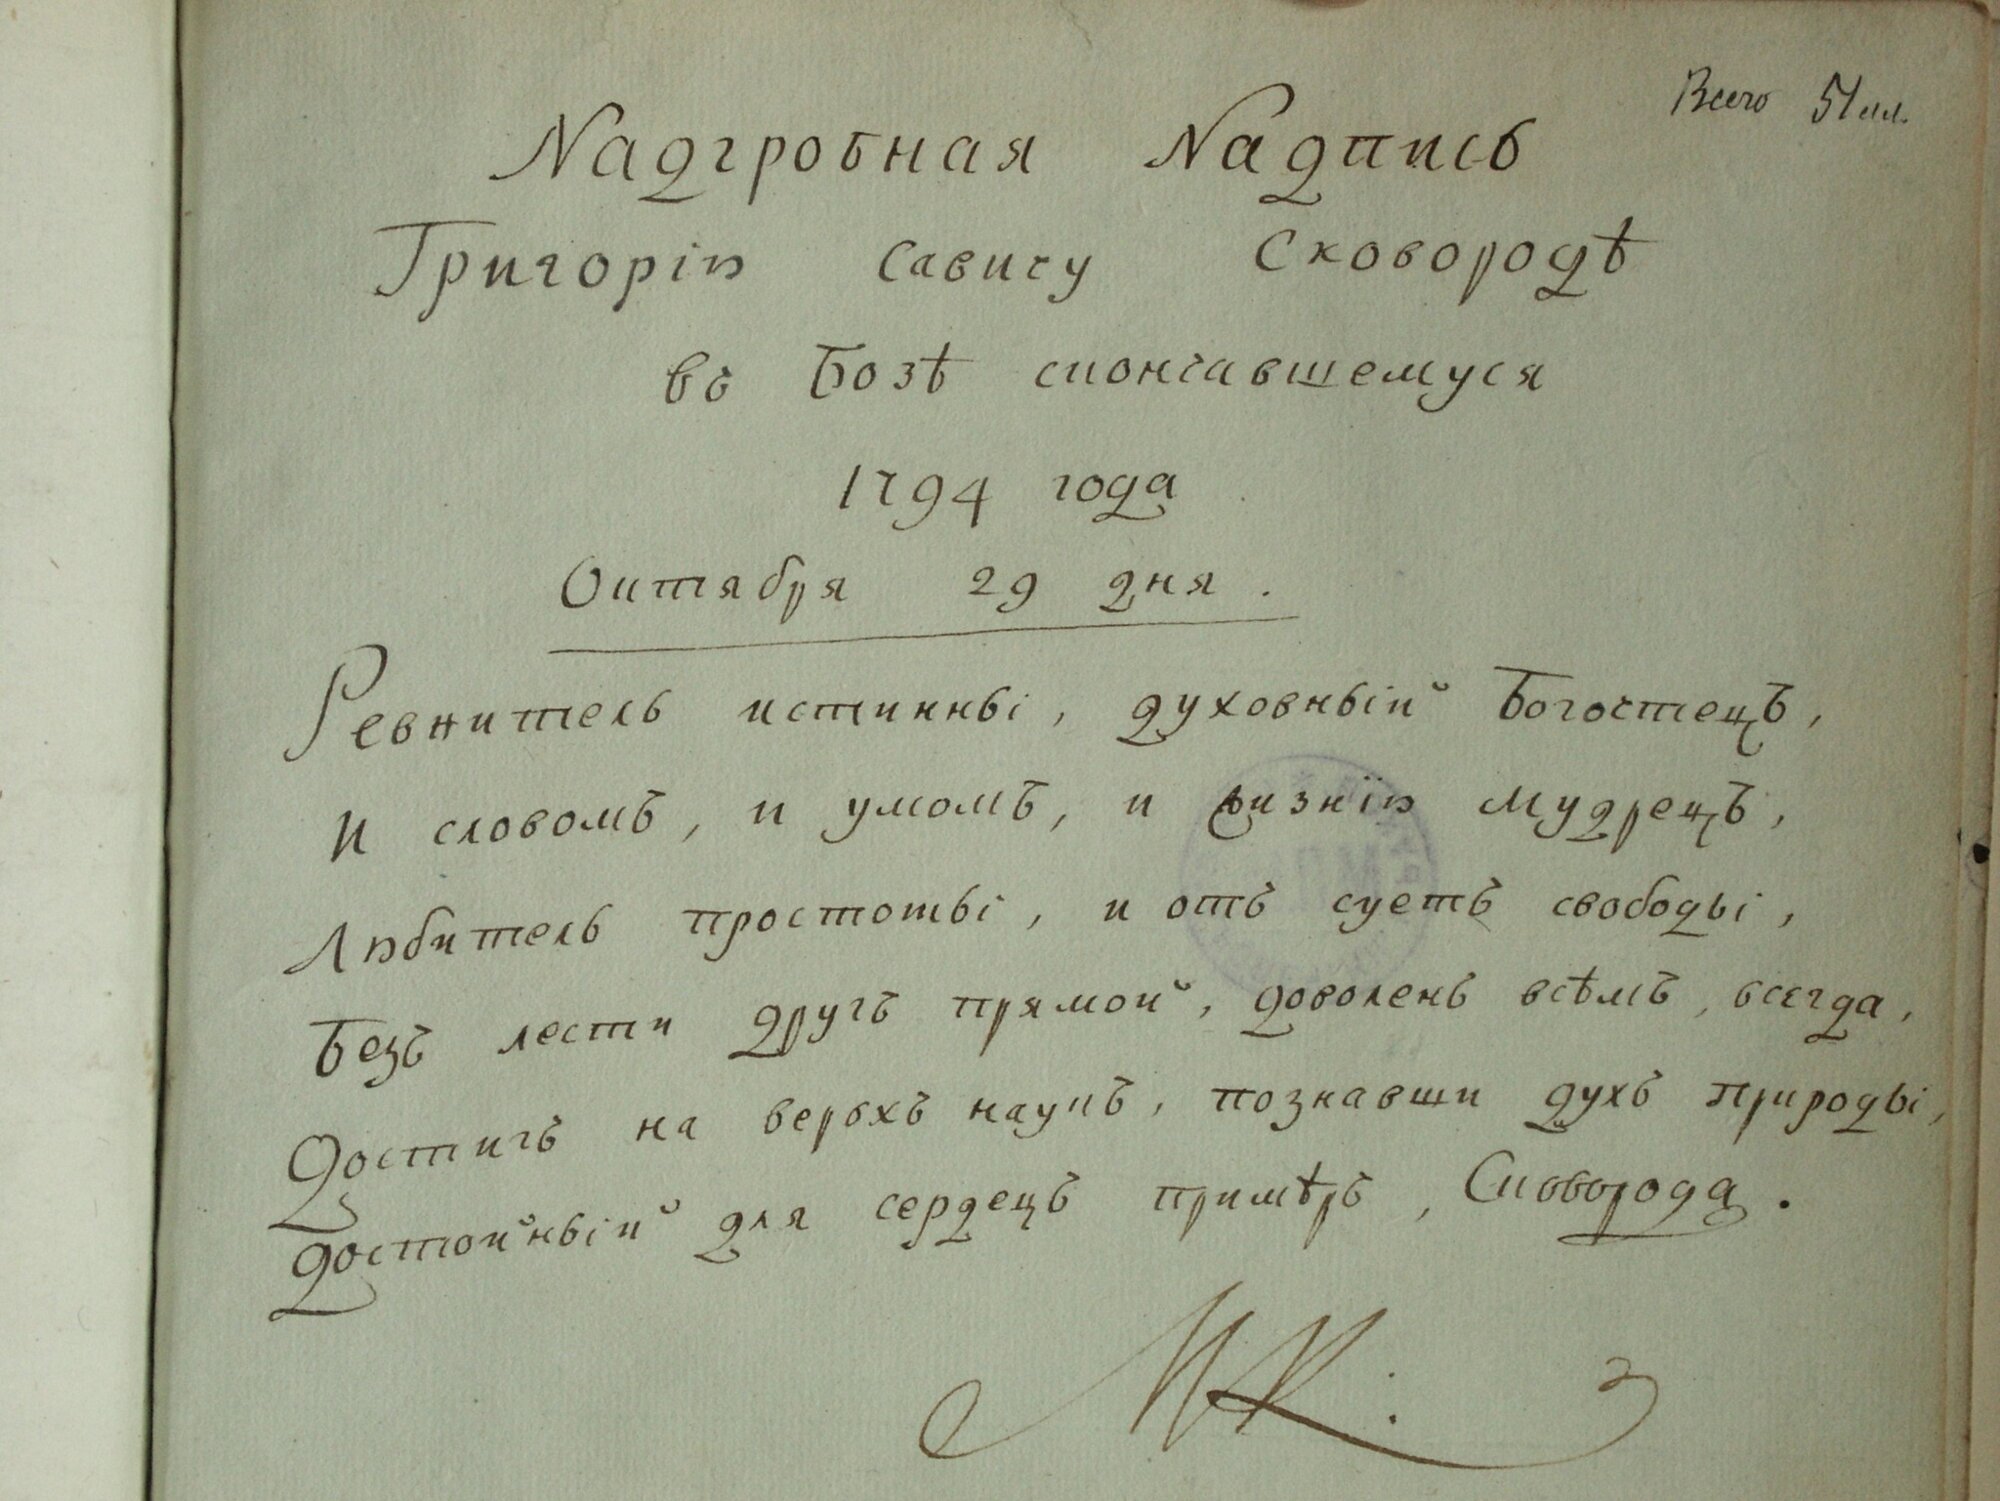 Всего 51 лл.
Надгробная Надпись
Григорію Савичу Сковородѣ
въ Бозѣ скончавшемуся
1794 года
Октября 29 дня.
Ревнитель истинны, духовный Богочтецъ,
И словомъ, и умомъ, и жизнїю мудрецъ,
Любитель простоты, и отъ суетъ свободы,
Безъ лести другъ прямой, доволенъ всѣмъ, всегда,
Достигъ на верьхъ наукъ, познавши духъ природы,
Достойный для сердецъ примѣръ, Сковорода.
МК: